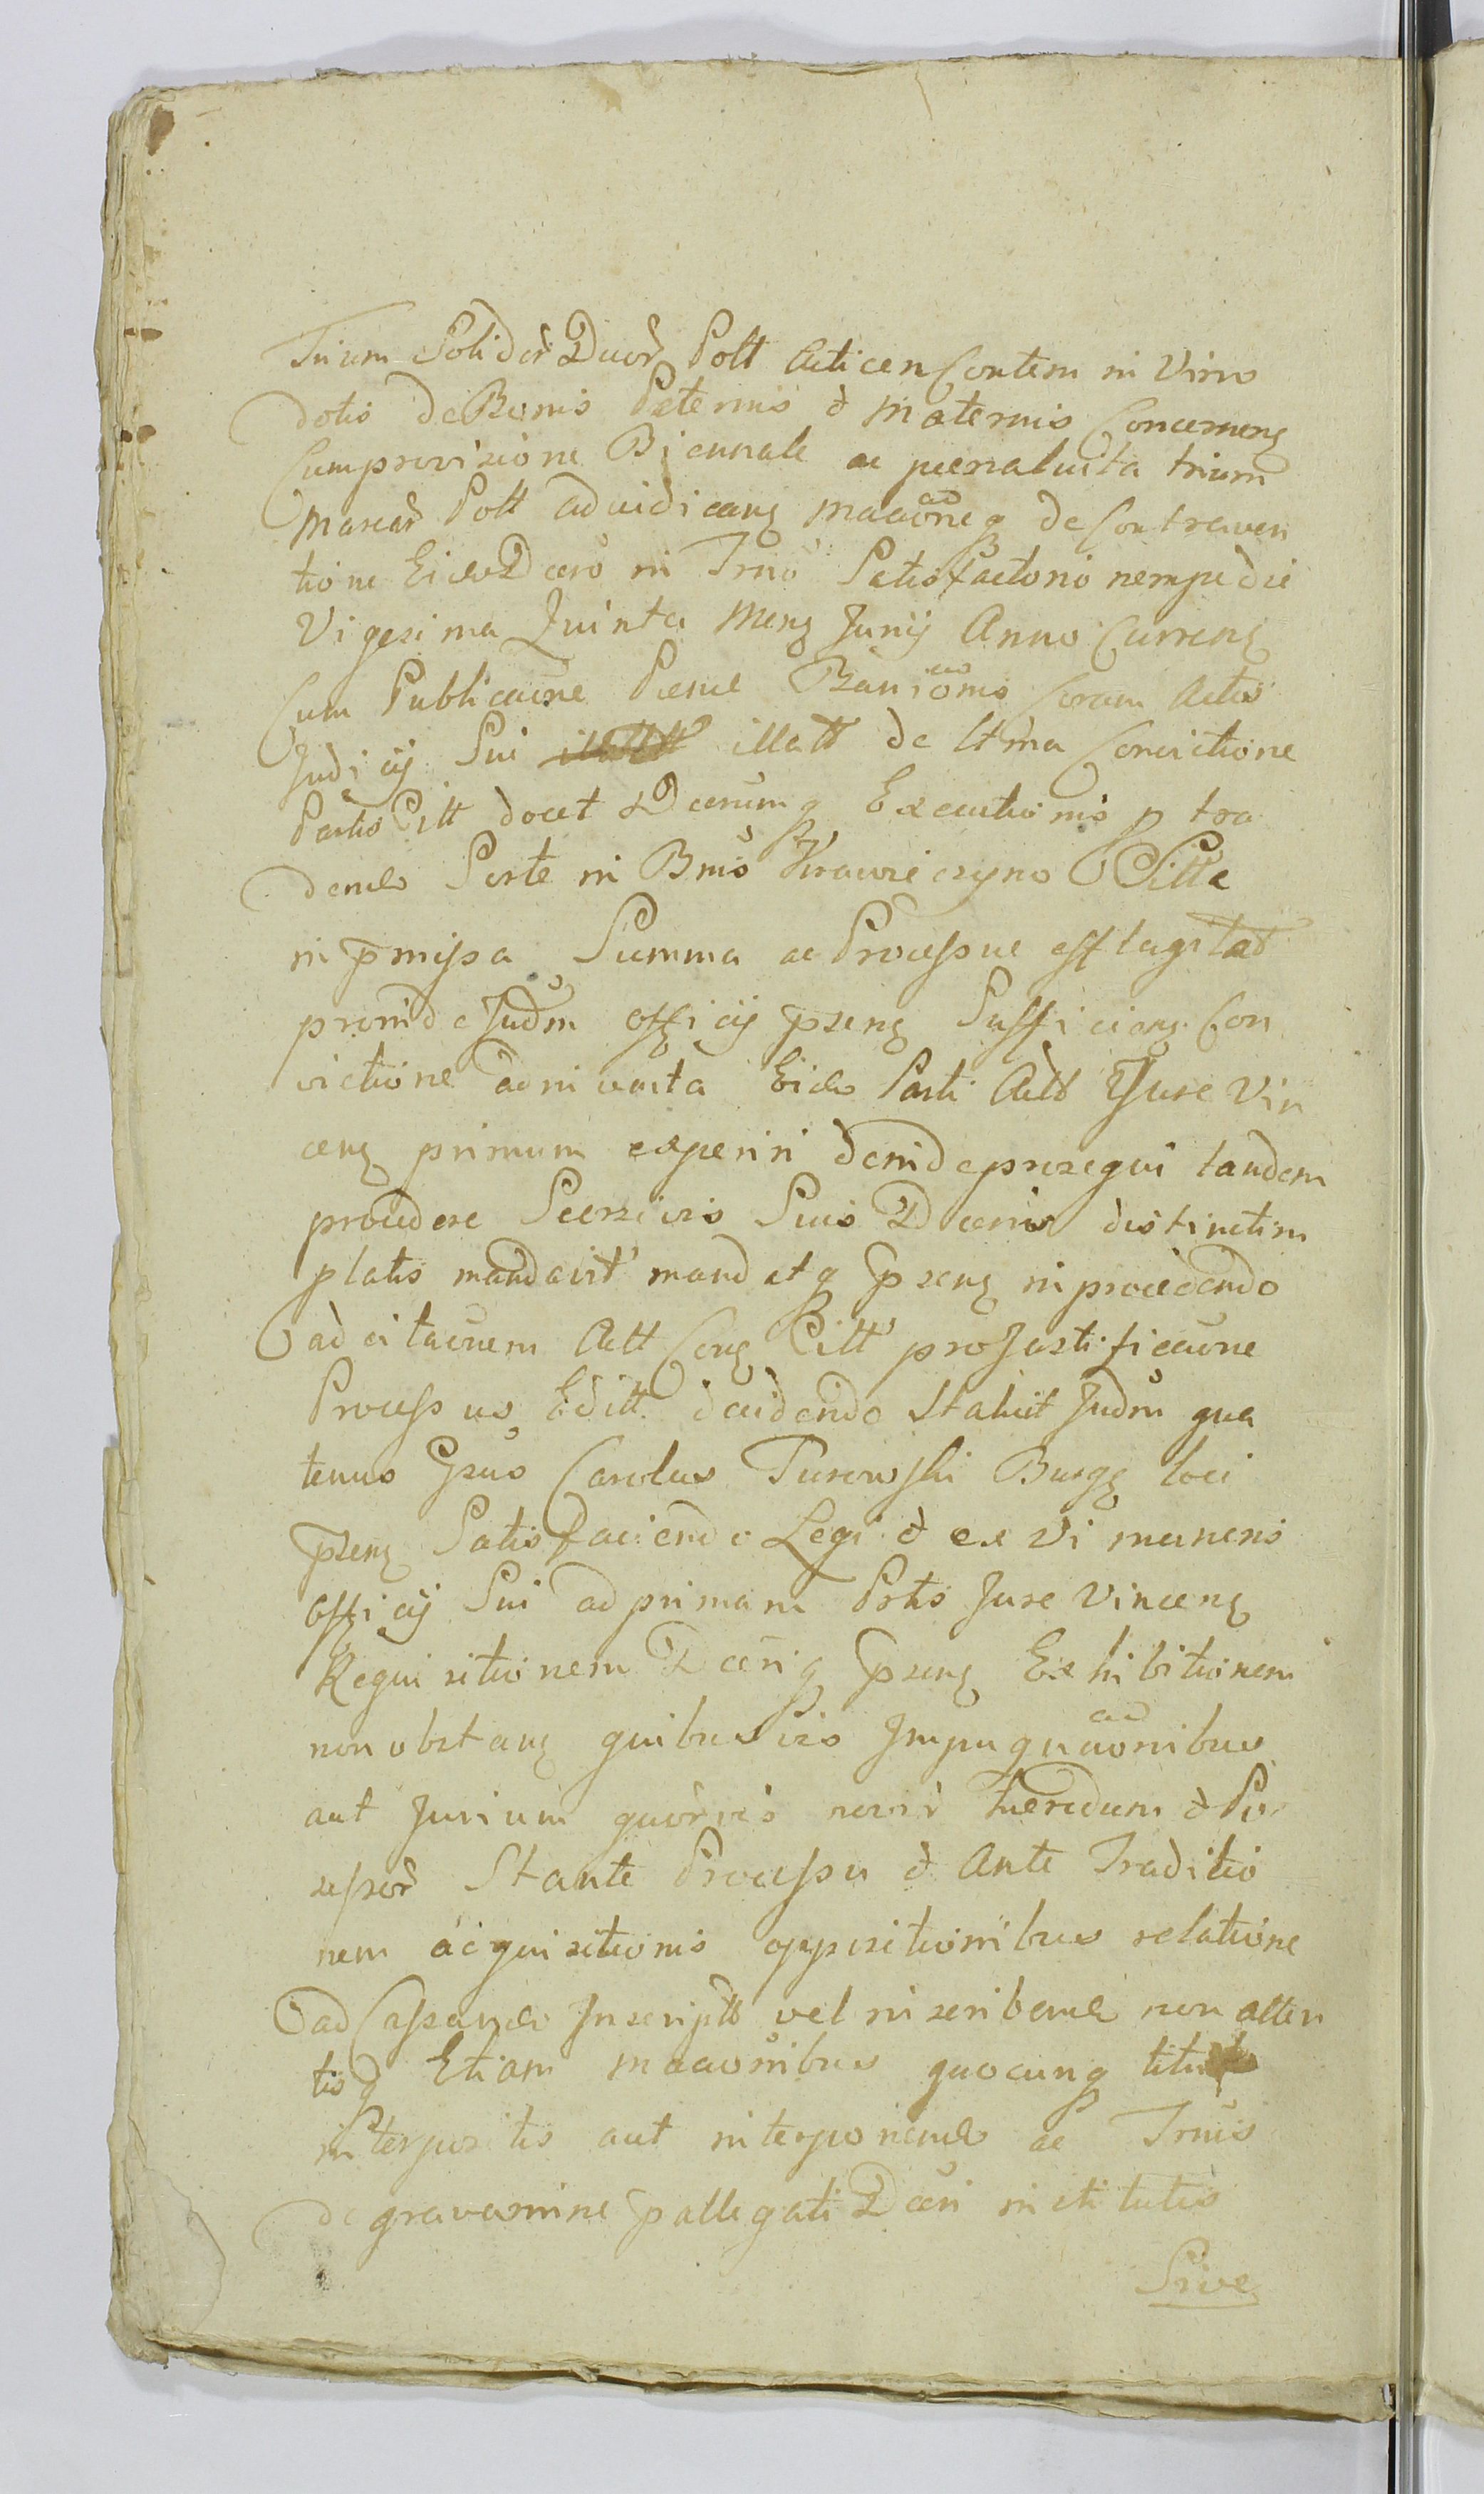 Trium Solidor̃ Duor̃ Poll Acticen Contem in Vim
dotis de Bonis Paternis & Maternis Concernenꝫ
Cum provisione Biennale ac poena luita trium
Marcar̃ Poll adiudicanꝫ maãoneq de Contraven
tione Eide Dcero in Trno Satisfactorio nempe die
Vigesima Quinta Menꝫ Junij Anno Currenꝫ
Cum Publicaõne Poenæ Banionis Coram Actis
Judicij Sui illatt de Ltma Convictione
Partis Citt docet Dcerumq Executionis p tra
dendo Sorte in Bnis Krawiczyno Sitte
in pmissa Summa ac Processue efflagitat
proinde Judm officij pzenꝫ Sufficienꝫ Con
victione adnivata Eide Parti Actt Jure Vin
cenꝫ primum experiri deinde prosequi tandem
procedere Suis Dcerris distinctim
platis mandavit mandatq pzenꝫ in procedendo
ad citaõnem Actt Conꝫ Citt pro Justificaõne
Processus Editt decidendo Statuit Judm qua
tenus Gsus Carolus Turowski Burgꝫ loci
pzenꝫ Satisfaciendo Legi & ex Vi muneris
officij Sui ad primam Prtis Jure Vincenꝫ
Requisitionem Dceriq pzenꝫ Exhibitionem
non obstanꝫ quibusvis Impugnaõnibus
aut Jurium quorvis novir̃ Heredum & Po
ssessor̃ Stante Processu & Ante Traditio
nem acquisitionis oppositionibus relatione
ad Cassando Inscriptt vel inscribend non atten
tisq Etiam maõnibus quocunq titulo
interpositis aut interponend ac Trnis
de gravamine pallegati Dceri institutis
Sive